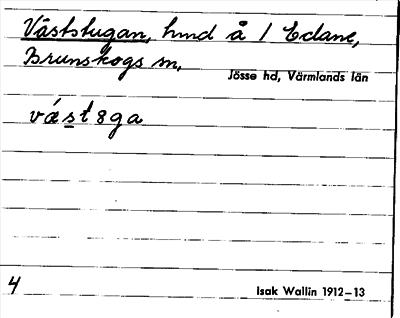 Väststugan, hmd å 1 Edane,
Brunskogs sn,
Jösse hd, Värmlands län
væ´stsga
4
Isak Wallin 1912–13